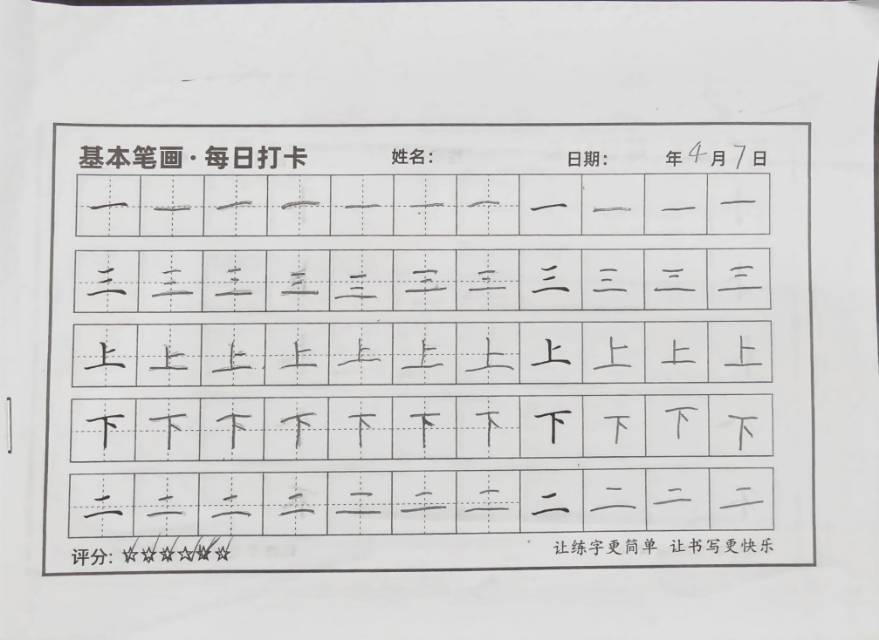 基本笔画·每日打卡 姓名: 日期: 年4月7日
一 一 一 一 一 一 一 一 一 一 一
三 三 三 三 三 三 三 三 三 三 三
上 上 上 上 上 上 上 上 上 上 上
下 下 下 下 下 下 下 下 下 下 下
二 二 二 二 二 二 二 二 二 二 二
评分: ☆☆☆☆☆☆ 让练字更简单 让书写更快乐